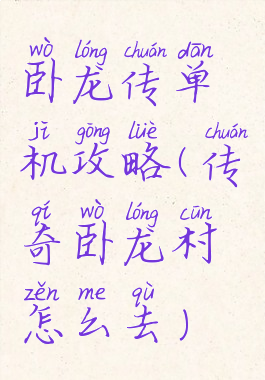 wò lóng chuán dān
卧龙传单
jī gōng lüè chuán
机攻略(传
qí wò lóng cūn
奇卧龙村
zěn me qù
怎么去)